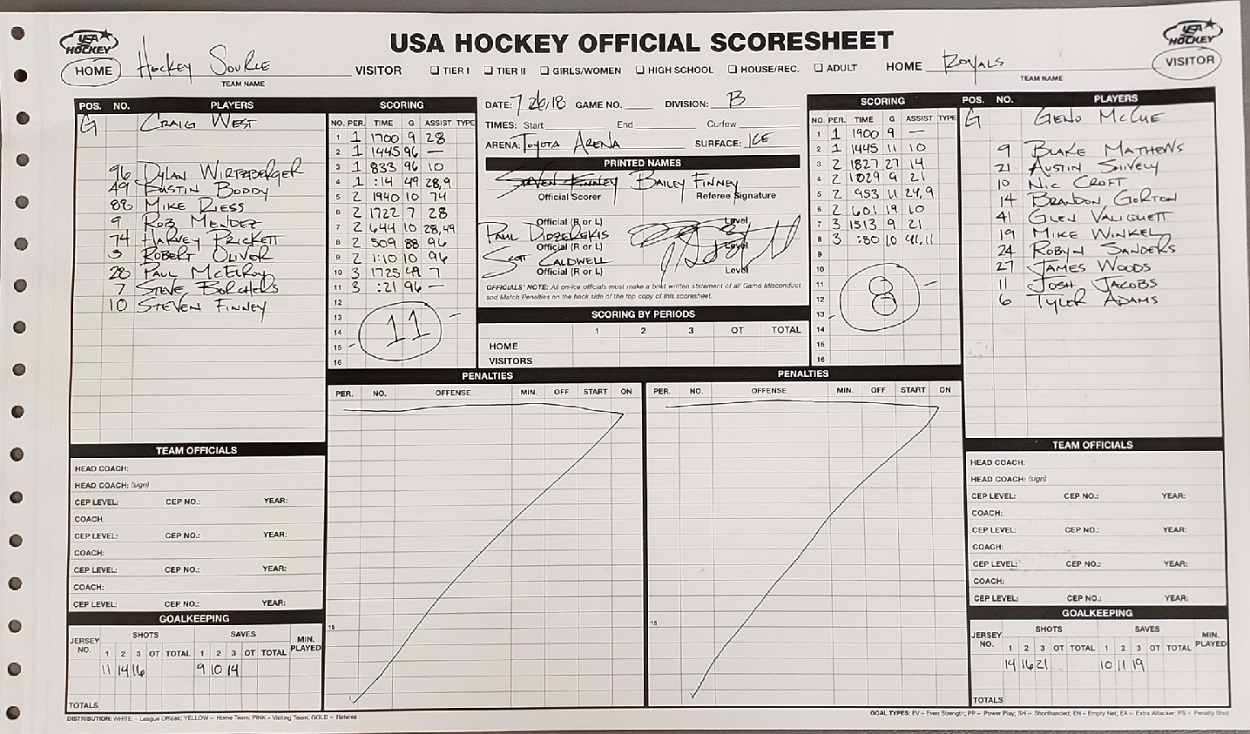 USA HOCKEY OFFICIAL SCORESHEET
USA HOCKEY
USA HOCKEY
HOME Hockey Source VISITOR
TEAM NAME
☐ TIER I ☐ TIER II ☐ GIRLS/WOMEN ☐ HIGH SCHOOL ☐ HOUSE/REC. ☐ ADULT
HOME Royals VISITOR
TEAM NAME
POS. NO. PLAYERS
G CRAIG WEST
96 DYLAN WIRTZBERGER
49 DUSTIN BODDY
88 MIKE RIESS
9 ROB MENDEZ
74 HARVEY PRICKETT
3 ROBERT OLIVER
28 PAUL McELROY
7 STEVE BORCHERS
10 STEVEN FINNEY
SCORING
NO. PER. TIME G ASSIST TYPE
1 1 1700 9 28
2 1 1445 96 —
3 1 833 96 10
4 1 :14 49 28,9
5 2 1940 10 74
6 2 1722 7 28
7 2 644 10 28,49
8 2 509 88 96
9 2 1:10 10 96
10 3 1725 49 7
11 3 :21 96 —
12
13
14
15
16
11
DATE: 7/26/18 GAME NO. DIVISION: B
TIMES: Start End Curfew
ARENA: Toyota ARENA SURFACE: ICE
PRINTED NAMES
STEVEN FINNEY BAILEY FINNEY
Official Scorer Referee Signature
Official (R or L) Level
PAUL DIDZEREKIS
Official (R or L) Level
SCOT CALDWELL
Official (R or L) Level
OFFICIALS' NOTE: As on-ice officials must make a brief written statement of all Game Misconduct
and Match Penalties on the back side of the top copy of this scoresheet.
SCORING BY PERIODS
1 2 3 OT TOTAL
HOME
VISITORS
SCORING
NO. PER. TIME G ASSIST TYPE
1 1 1900 9 —
2 1 1445 11 10
3 2 1827 27 14
4 2 1029 9 21
5 2 953 11 24,9
6 2 601 19 10
7 3 1513 9 21
8 3 :50 10 41,11
9
10
11
12
13
14
15
16
8
POS. NO. PLAYERS
G GENO McCUE
9 BLAKE MATHEWS
21 AUSTIN SHIVELY
10 NIC CROFT
14 BRANDON GORTON
41 GLEN VALIQUETT
19 MIKE WINKEL
24 ROBYN SANDERS
27 JAMES WOODS
11 JOSH JACOBS
6 TYLER ADAMS
PENALTIES
PER. NO. OFFENSE MIN. OFF START ON
15
PENALTIES
PER. NO. OFFENSE MIN. OFF START ON
15
TEAM OFFICIALS
HEAD COACH:
HEAD COACH: (sign)
CEP LEVEL: CEP NO.: YEAR:
COACH:
CEP LEVEL: CEP NO.: YEAR:
COACH:
CEP LEVEL: CEP NO.: YEAR:
COACH:
CEP LEVEL: CEP NO.: YEAR:
GOALKEEPING
JERSEY NO. SHOTS SAVES MIN. PLAYED
1 2 3 OT TOTAL 1 2 3 OT TOTAL
11 14 16 9 10 14
TOTALS
TEAM OFFICIALS
HEAD COACH:
HEAD COACH: (sign)
CEP LEVEL: CEP NO.: YEAR:
COACH:
CEP LEVEL: CEP NO.: YEAR:
COACH:
CEP LEVEL: CEP NO.: YEAR:
COACH:
CEP LEVEL: CEP NO.: YEAR:
GOALKEEPING
JERSEY NO. SHOTS SAVES MIN. PLAYED
1 2 3 OT TOTAL 1 2 3 OT TOTAL
14 16 21 10 11 19
TOTALS
DISTRIBUTION: WHITE – League Offices; YELLOW – Home Team; PINK – Visiting Team; GOLD – Referee
GOAL TYPES: EV – Even Strength; PP – Power Play; SH – Shorthanded; EN – Empty Net; EA – Extra Attacker; PS – Penalty Shot